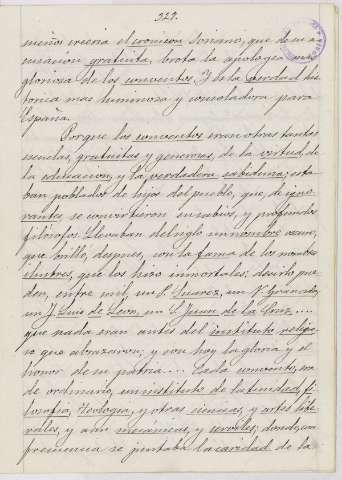 329.
menos creería el cronicon Soriano, que de su a-
cusacion gratuita, brota la apologia mas
gloriosa de los conventos. Y esta verdad his
torica mas luminosa y consoladora para
España.
Porque los conventos eran otras tantas
escuelas, gratuitas y generosas, de la virtud, de
la educacion, y la verdadera sabiduria; esta
ban poblados de hijos del pueblo, que, de igno-
rantes, se convirtieron en sabios, y profundos
filósofos. Llevaban del siglo un nombre oscuro,
que brilló, despues, con la fama de los
celebres, que los hizo inmortales; decirlo pue
den, entre mil, un P. Suarez, un F. Granada,
un F. Luis de Leon, un S. Juan de la Cruz....
que nada eran antes del instituto religio
so que abrazaron; y son hoy la gloria y el
honor de su patria... Cada convento, era
de ordinario, un instituto de latinidad, fi
losofia, teologia, y otras ciencias, y artes libe
rales, y aun mecánicas, y serviles; donde, con
frecuencia se juntaba la caridad de la